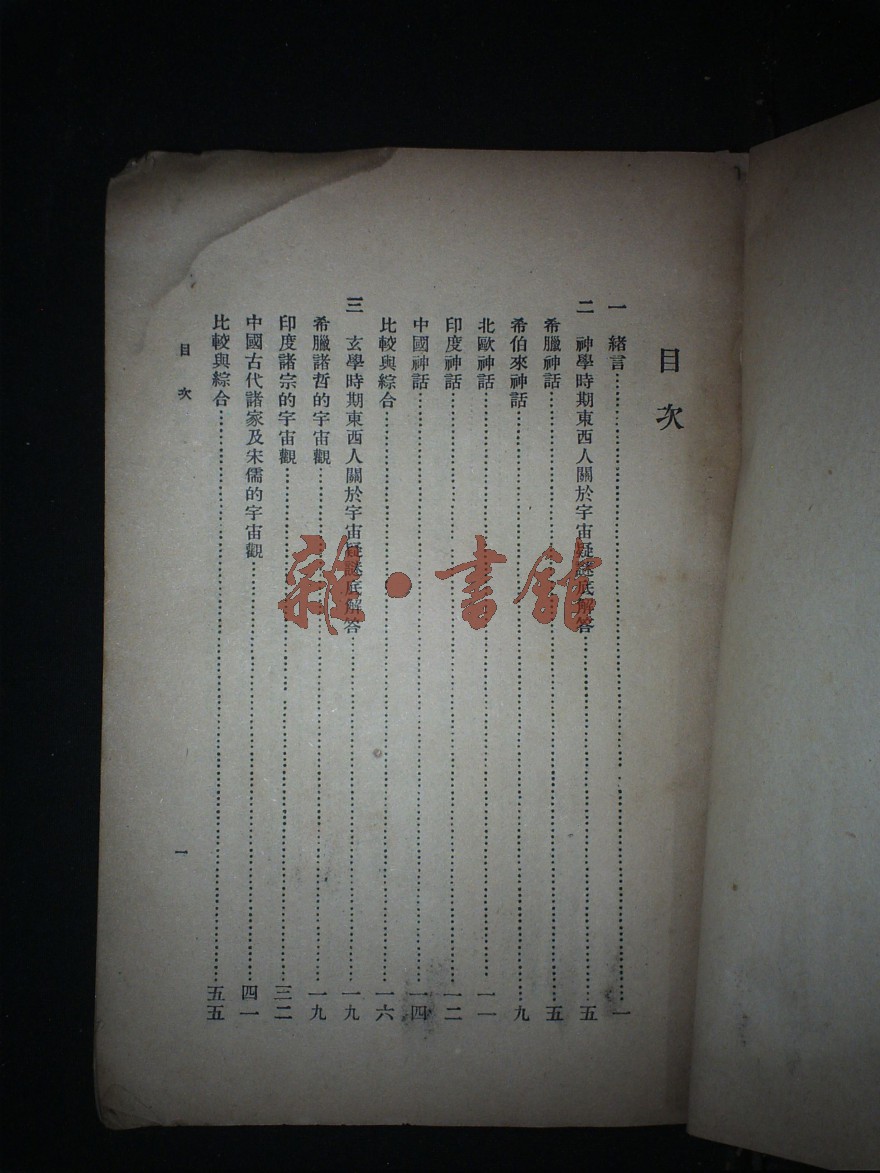 目次
一 緒言……一
二 神學時期東西人關於宇宙疑謎底解答……五
希臘神話……五
希伯來神話……九
北歐神話……一一
印度神話……一二
中國神話……一四
比較與綜合……一六
三 玄學時期東西人關於宇宙疑謎底解答……一九
希臘諸哲的宇宙觀……一九
印度諸宗的宇宙觀……三二
中國古代諸家及宋儒的宇宙觀……四一
比較與綜合……五五
目次
一
雜·書館